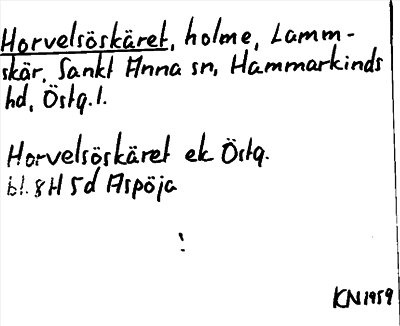 Horvelsöskäret, holme, Lamm-
skär, Sankt Anna sn, Hammarkinds
hd, Östg.l.
Horvelsöskäret ek Östg.
bl. 8H 5d Aspöja
!
KN1959